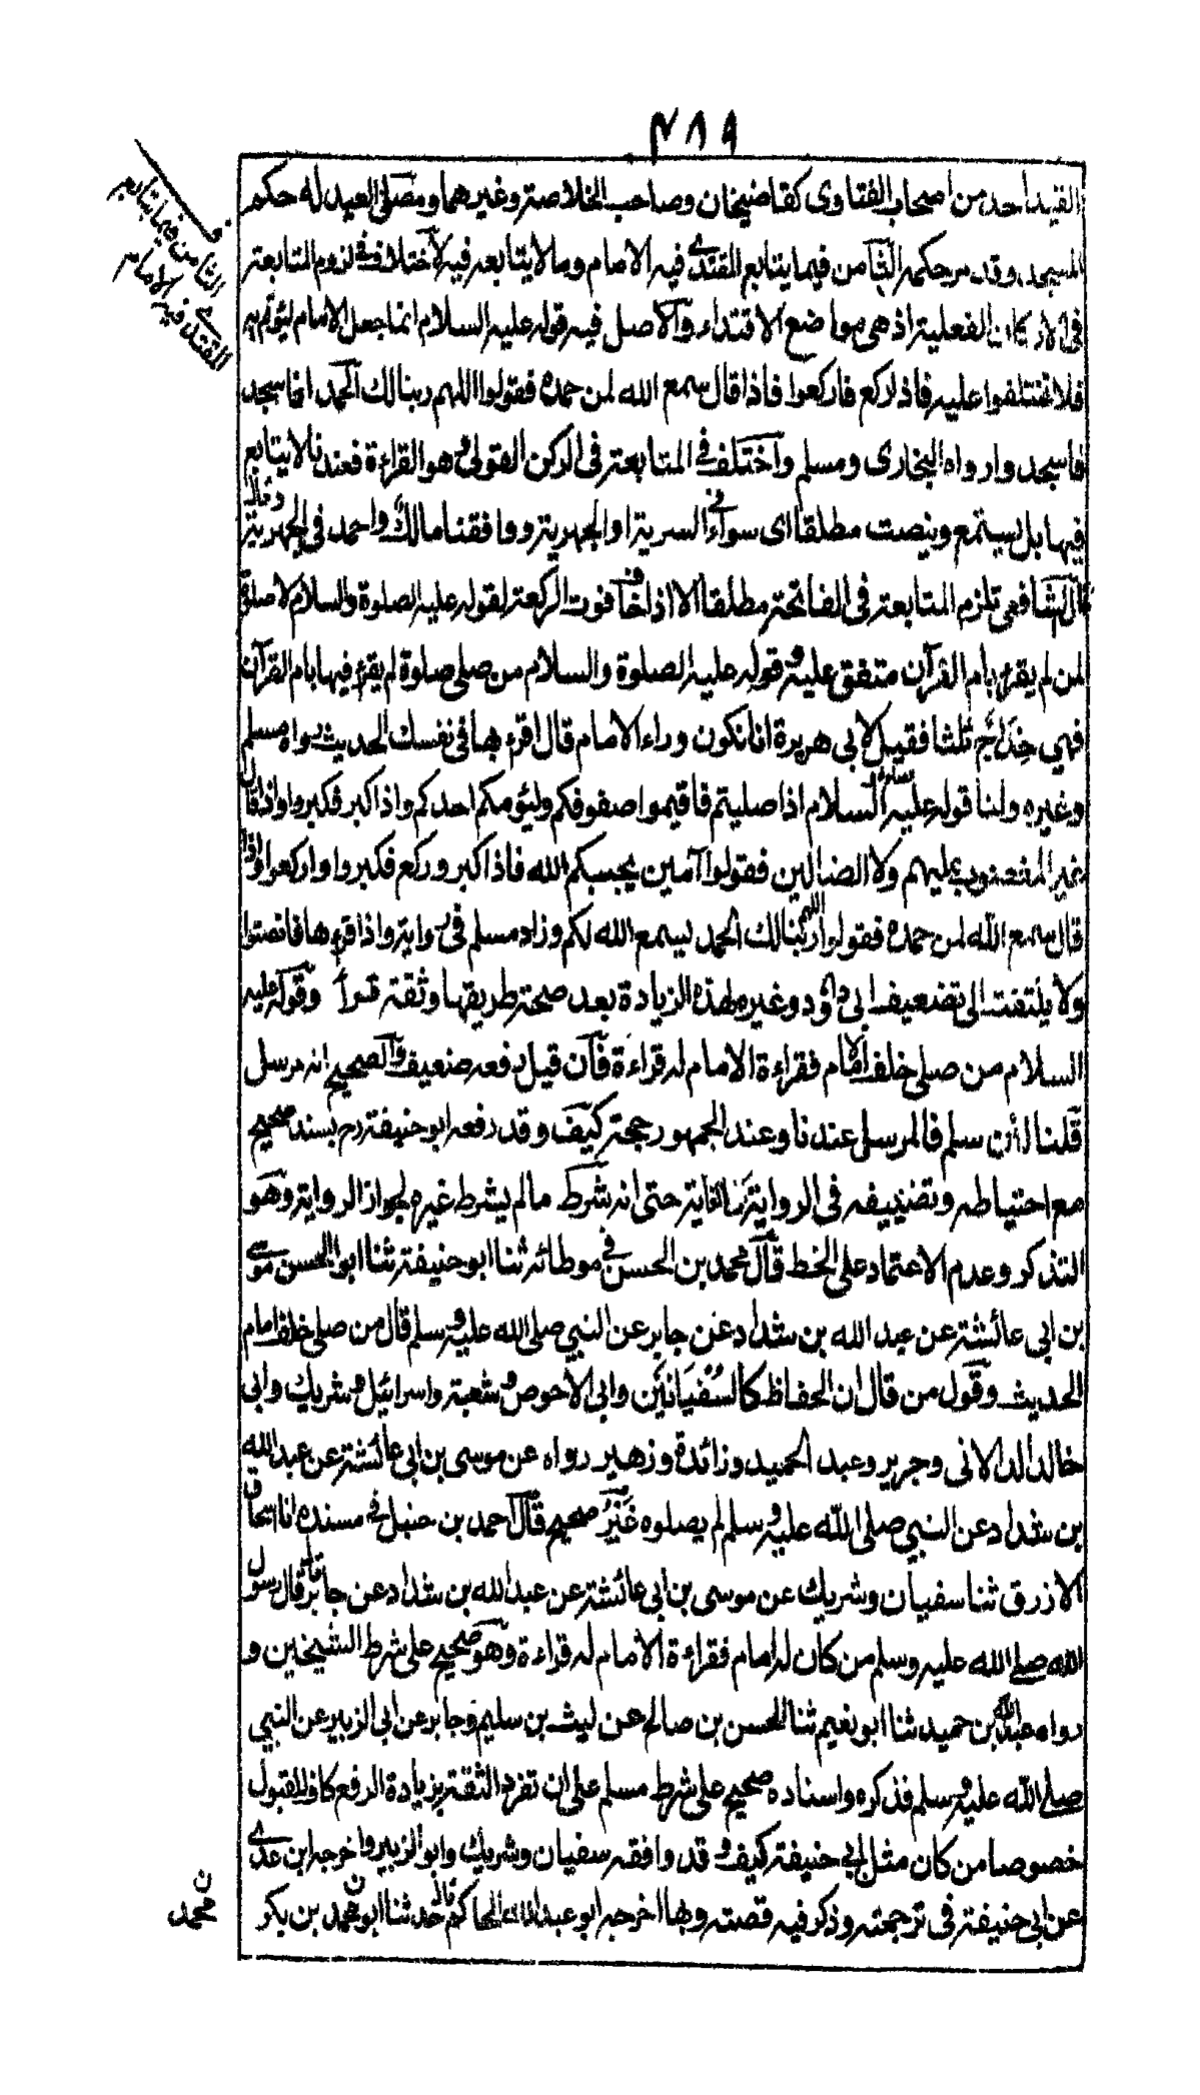 ٤٨٩
القيد احد من اصحاب الفتاوى كقاضيخان وصاحب الخلاصة وغيرهما ومصلى العيد له حكم
المسجد وقد مر حكمه الثامن فيما يتابع المقتدى فيه الامام وما لا يتابعه فيه لا اختلاف فى لزوم المتابعة
فى الاركان الفعلية اذ هى مواضع الاقتداء والاصل فيه قوله عليه السلام انما جعل الامام ليؤتم به
فلا تختلفوا عليه فاذا ركع فاركعوا فاذا قال سمع الله لمن حمده فقولوا اللهم ربنا لك الحمد اذا سجد
فاسجدوا رواه البخارى ومسلم واختلف فى المتابعة فى الركن القولى وهو القراءة فعندنا لا يتابع
فيها بل يستمع وينصت مطلقا اى سواء فى السرية او الجهرية ووافقنا مالك واحمد فى الجهرية وقال
قال الشافعى تلزم المتابعة فى الفاتحة مطلقا الا اذا خاف فوت الركعة لقوله عليه الصلوة والسلام لا صلوة
لمن لم يقرء بام القرآن متفق عليه وقوله عليه الصلوة والسلام من صلى صلوة لم يقرء فيها بام القرآن
فهي خداج ثلثا فقيل لابى هريرة انا نكون وراء الامام قال اقرء بها فى نفسك الحديث رواه مسلم
وغيره ولنا قوله عليه السلام اذا صليتم فاقيموا صفوفكم وليؤمكم احدكم واذا كبر فكبروا واذا قال
غير المغضوب عليهم ولا الضالين فقولوا آمين يجبكم الله فاذا كبر وركع فكبروا واركعوا واذا
قال سمع الله لمن حمده فقولوا اللهم ربنا لك الحمد يسمع الله لكم وزاد مسلم فى رواية واذا قرء فانصتوا
ولا يلتفت الى تضعيف ابى داؤد وغيره لهذه الزيادة بعد صحة طريقها وثقة وقوله عليه
السلام من صلى خلف الامام فقراءة الامام له قراءة فان قيل رفعه ضعيف والصحيح انه مرسل
قلنا لئن سلم فالمرسل عندنا وعند الجمهور حجة كيف وقد رفعه ابو حنيفة رح بسند صحيح
مع احتياطه وتضييقه فى الرواية حتى انه شرط ما لم يشرط غيره لجواز الرواية وهو
التذكر وعدم الاعتماد على الخط قال محمد بن الحسن فى موطائه ثنا ابو حنيفة ثنا ابو الحسن موسى
بن ابى عائشة عن عبد الله بن شداد عن جابر عن النبي صلى الله عليه وسلم قال من صلى خلف امام
الحديث وقول من قال ان الحفاظ كالسفيانين وابى الاحوص وشعبة واسرائيل وشريك وابى
خالد الدالانى وجرير وعبد الحميد وزائدة وزهير رواه عن موسى بن ابى عائشة عن عبد الله
بن شداد عن النبي صلى الله عليه وسلم لم يصلوه غير صحيح قال احمد بن حنبل فى مسنده انا اسحاق
الازرق ثنا سفيان وشريك عن موسى بن ابى عائشة عن عبد الله بن شداد عن جابر قال قال رسول
الله صلى الله عليه وسلم من كان له امام فقراءة الامام له قراءة وهو صحيح على شرط الشيخين و
رواه عبد الله بن حميد ثنا ابو نعيم ثنا الحسن بن صالح عن ليث بن سليم وجابر عن ابى الزبير عن النبي
صلى الله عليه وسلم فذكره واسناده صحيح على شرط مسلم على ان تفرد الثقة بزيادة الرفع كاف للقبول
خصوصا من كان مثل ابى حنيفة كيف وقد وافقه سفيان وشريك وابو الزبير واخرجه ابن عدى
عن ابى حنيفة فى ترجمته وذكر فيه قصته وبها اخرجه ابو عبد الله الحاكم قال حدثنا ابو محمد بن بكر
الثامن فيما يتابع
المقتدى فيه الامام
ن
محمد